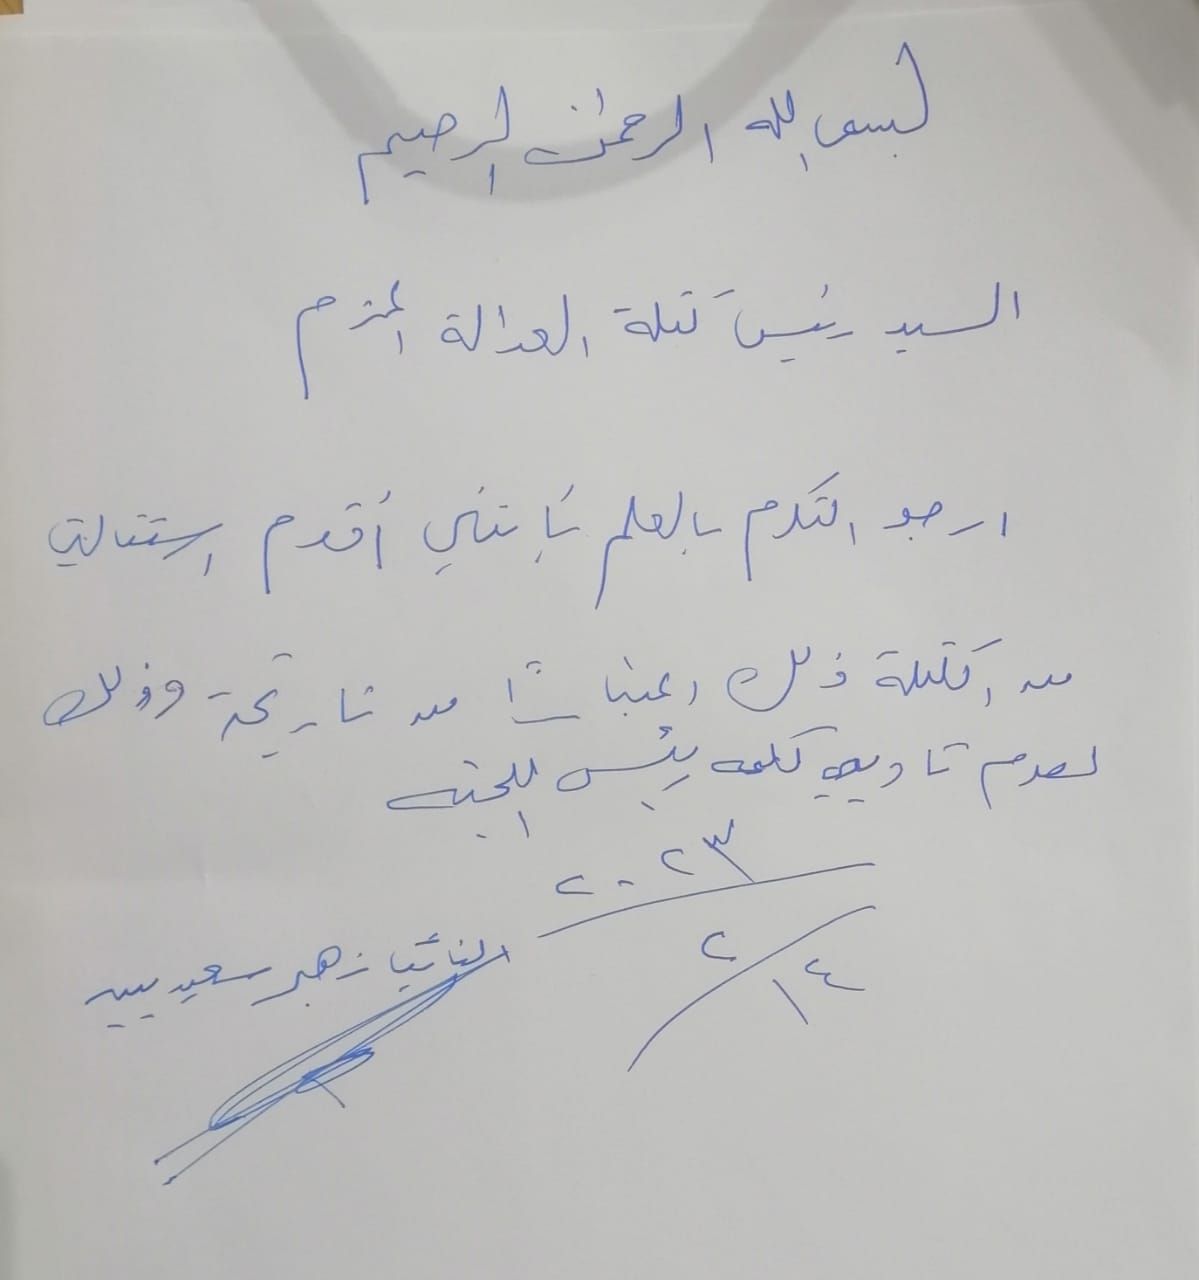 بسم الله الرحمن الرحيم
السيد رئيس كتلة العدالة المحترم
ارجو التكرم بالعلم بأنني أقدم استقالتي
من الكتلة وذلك اعتباراً من تاريخه وذلك
لعدم كلمة رئيس اللجنه
٢٠٢٣
٢
١٤
النائب زهير سعيدين